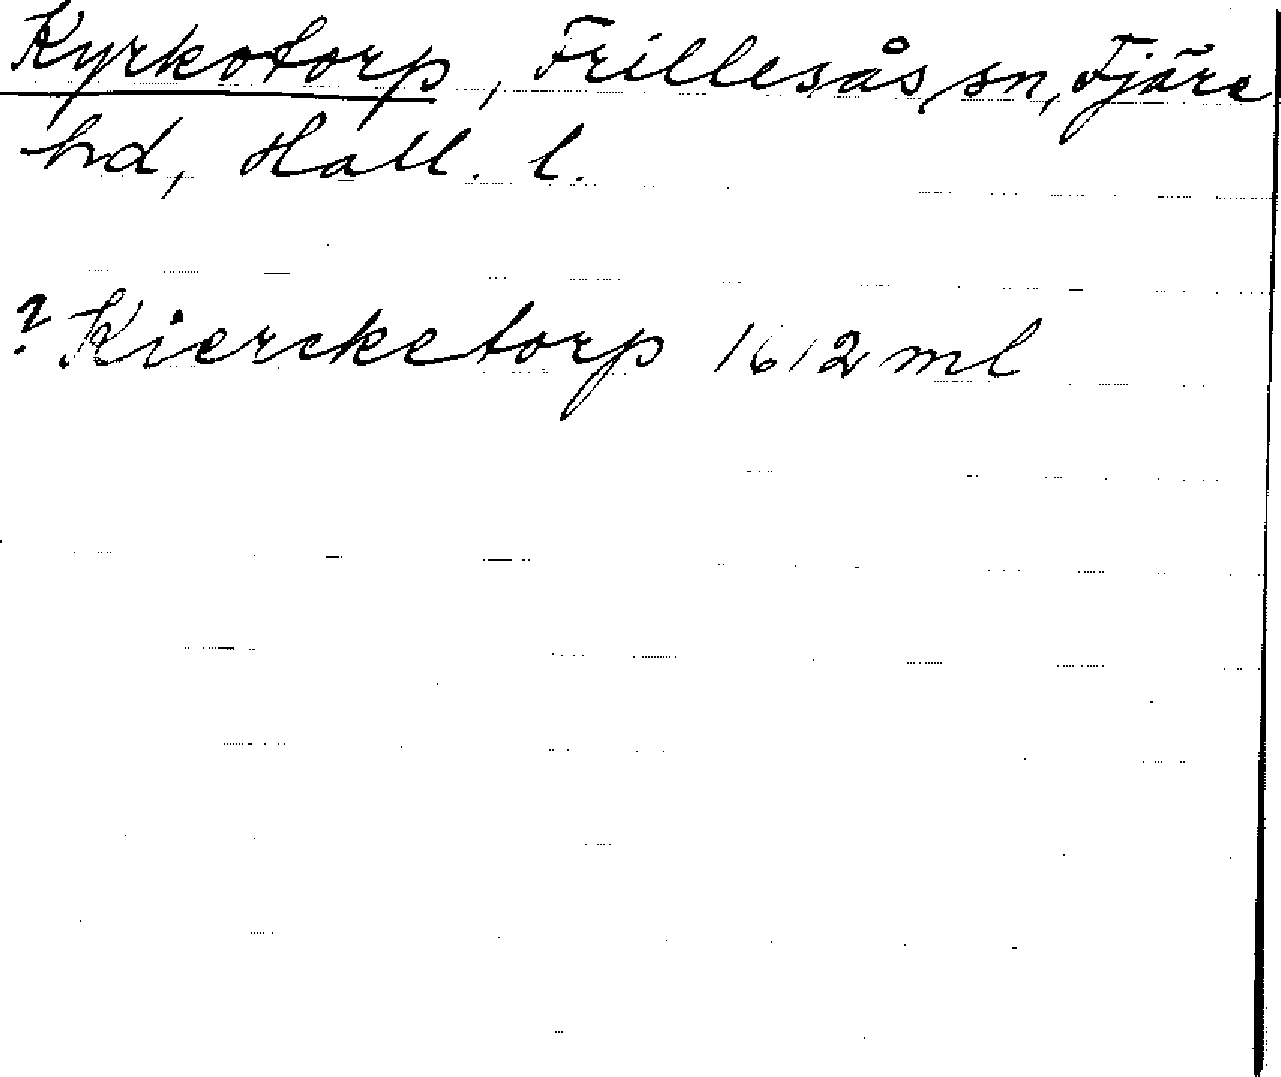 Kyrkotorp, Frillesås sn, Fjäre
hd, Hall. l.
? Kiercketorp 1612 ml